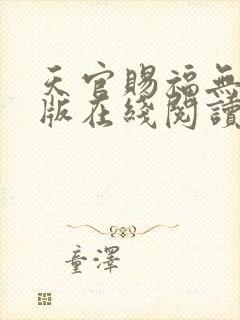 天官賜福無
版在綫閱讀
童澤